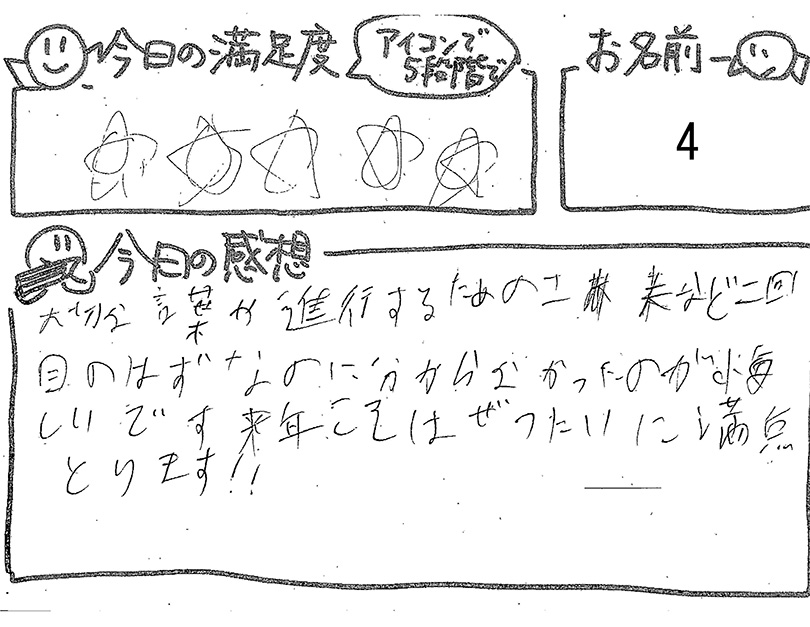 今日の満足度
アイコンで
5段階で
お名前
4
今日の感想
大切な言葉が進行するための二 来など二回
目のはずなのに分からなかったのが悔
しいです来年こそはぜったいに満点
とります!!